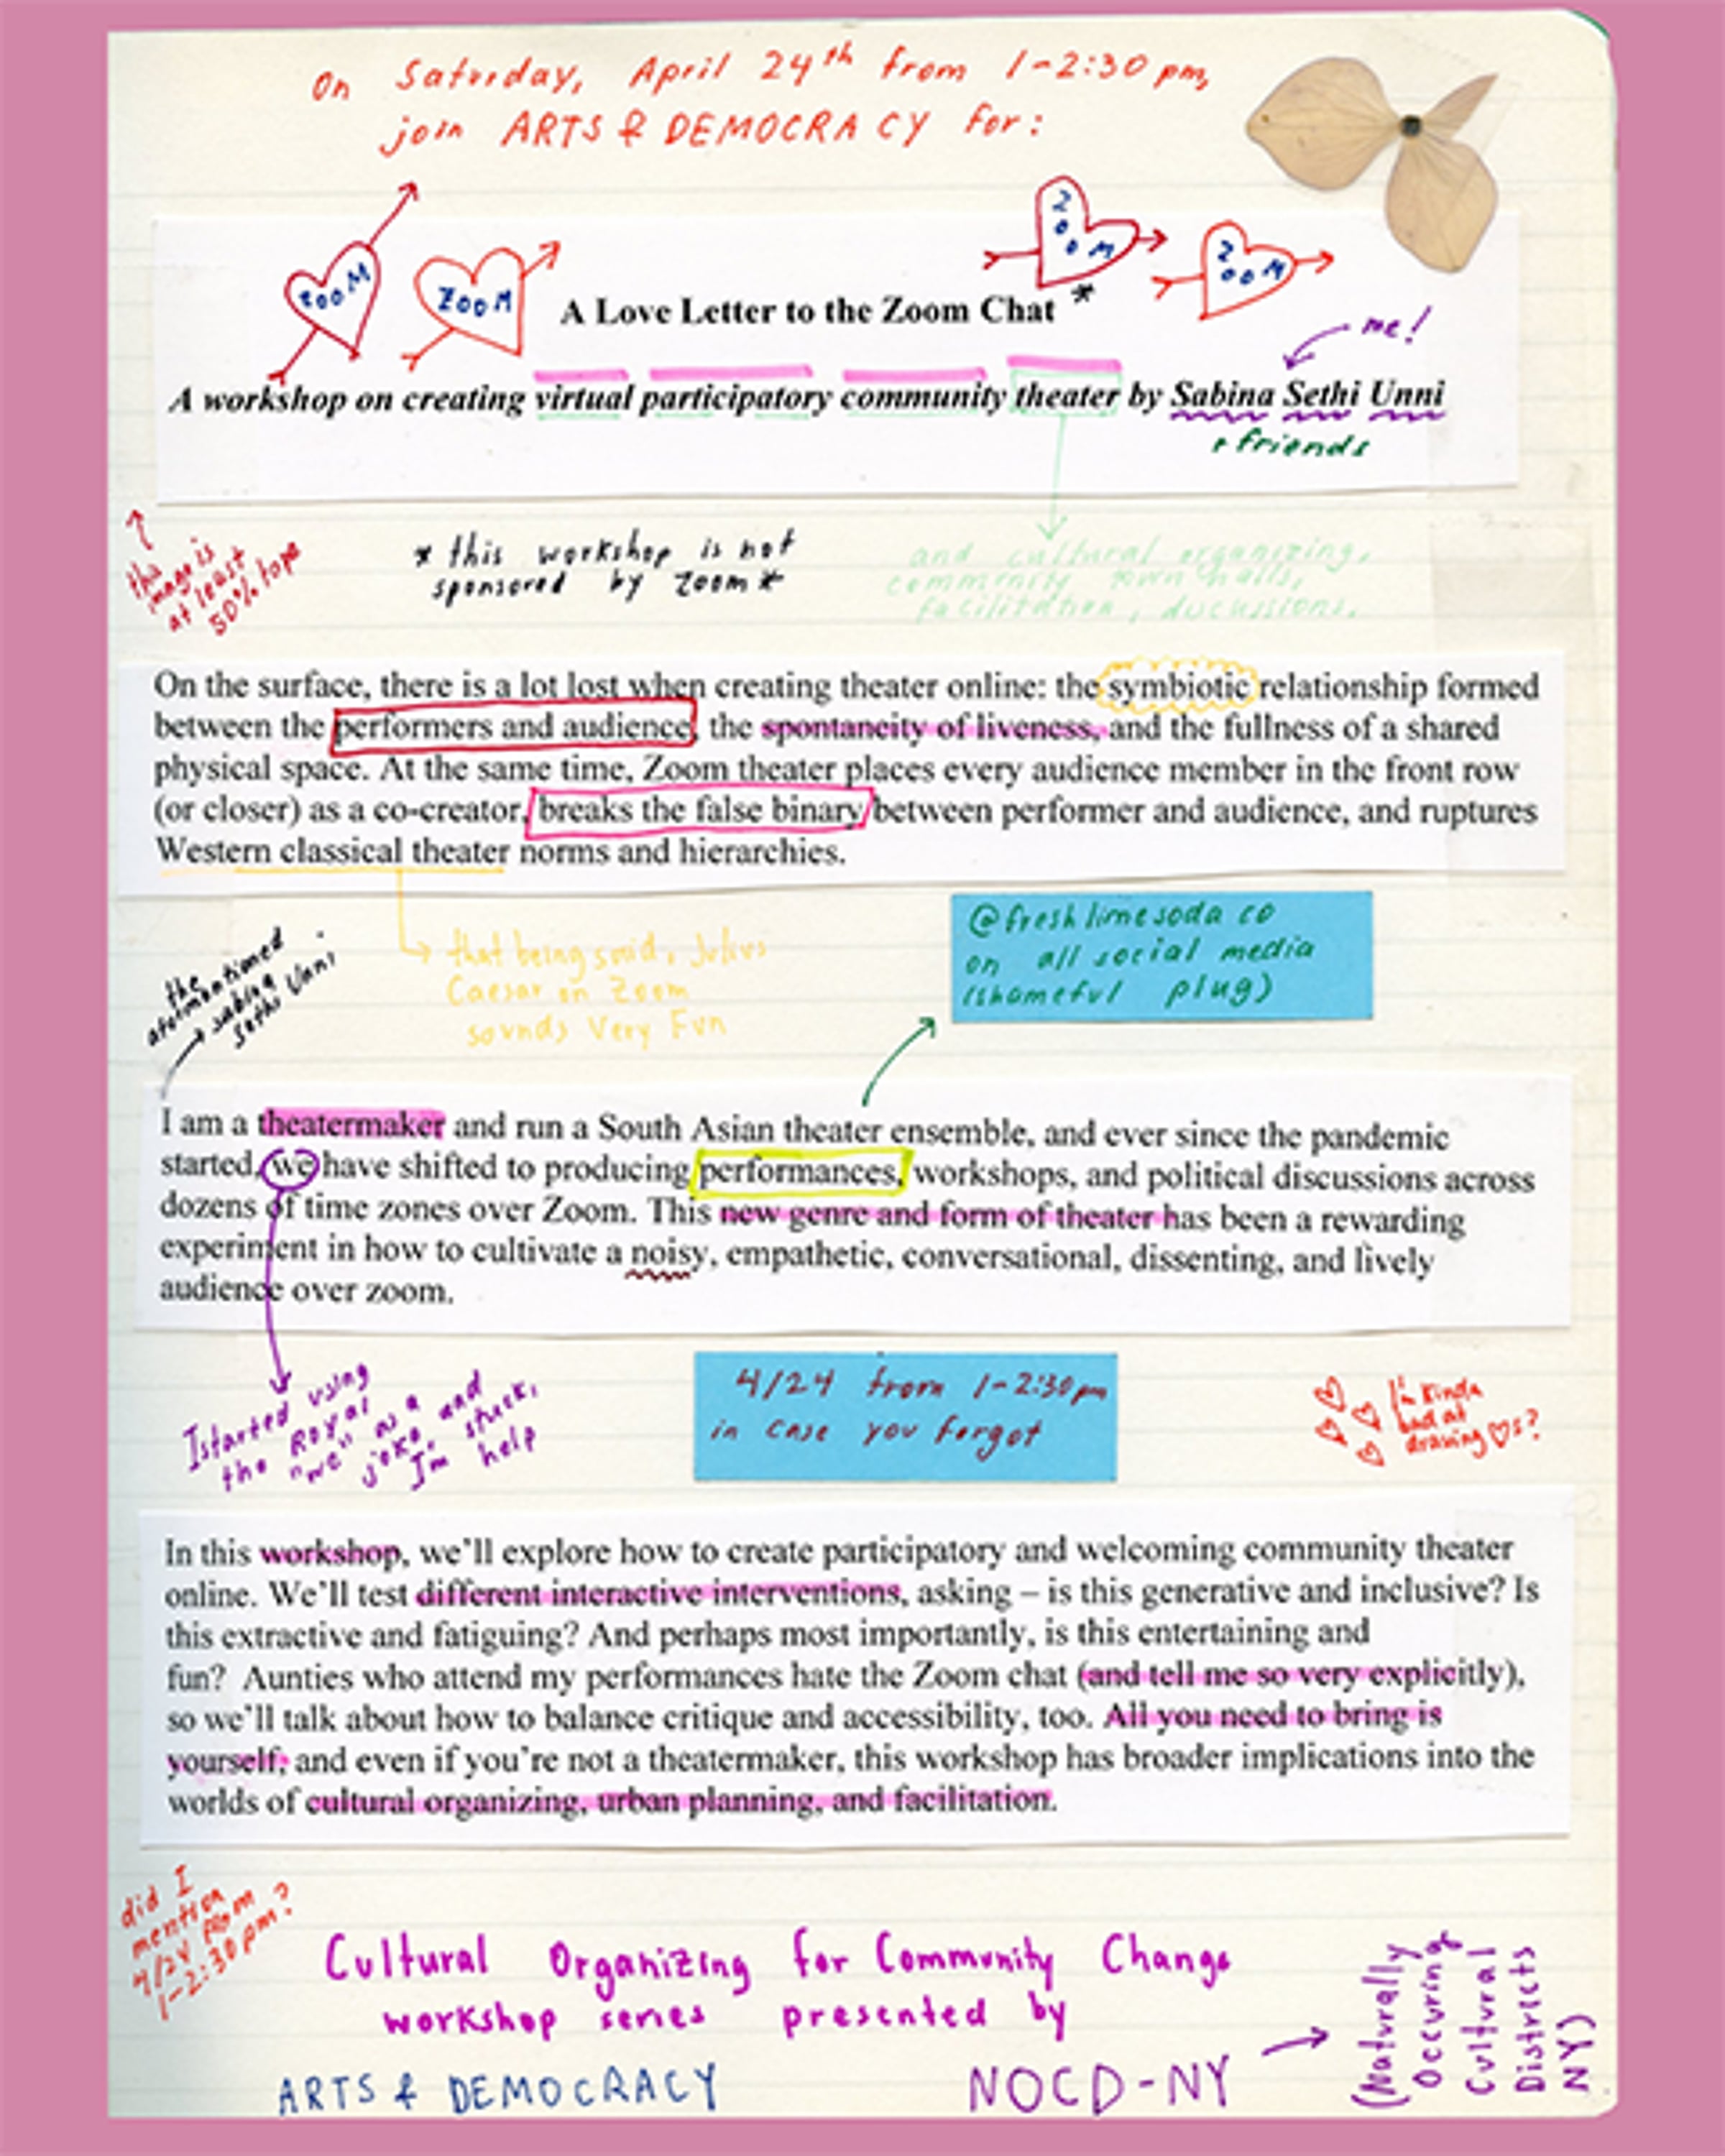 On Saturday, April 24th from 1-2:30 pm,
join ARTS & DEMOCRACY for:
ZOOM
ZOOM
ZOOM
ZOOM
A Love Letter to the Zoom Chat *
me!
A workshop on creating virtual participatory community theater by Sabina Sethi Unni
+ friends
this
image is
at least
50% tape
* this workshop is not
sponsored by Zoom *
and cultural organizing,
community town halls,
facilitation, ducussions.
On the surface, there is a lot lost when creating theater online: the symbiotic relationship formed
between the performers and audience, the spontaneity of liveness, and the fullness of a shared
physical space. At the same time, Zoom theater places every audience member in the front row
(or closer) as a co-creator, breaks the false binary between performer and audience, and ruptures
Western classical theater norms and hierarchies.
that being said, Julius
Caesar on Zoom
sounds Very Fun
@freshlimesoda co
on all social media
(shameful plug)
the
sabina
Sethi Unni
I am a theatermaker and run a South Asian theater ensemble, and ever since the pandemic
started, we have shifted to producing performances, workshops, and political discussions across
dozens of time zones over Zoom. This new genre and form of theater has been a rewarding
experiment in how to cultivate a noisy, empathetic, conversational, dissenting, and lively
audience over zoom.
I started using
the Royal
"we" as a
joke and
I'm stuck,
help
4/24 from 1-2:30pm
in case you forgot
I'm kinda
bad at
drawing ♡s?
In this workshop, we'll explore how to create participatory and welcoming community theater
online. We'll test different interactive interventions, asking – is this generative and inclusive? Is
this extractive and fatiguing? And perhaps most importantly, is this entertaining and
fun? Aunties who attend my performances hate the Zoom chat (and tell me so very explicitly),
so we'll talk about how to balance critique and accessibility, too. All you need to bring is
yourself; and even if you're not a theatermaker, this workshop has broader implications into the
worlds of cultural organizing, urban planning, and facilitation.
did I
mention
4/24 from
1-2:30 pm?
Cultural Organizing for Community Change
workshop series presented by
ARTS & DEMOCRACY
NOCD-NY
(Naturally
Occuring
Cultural
Districts
NY)